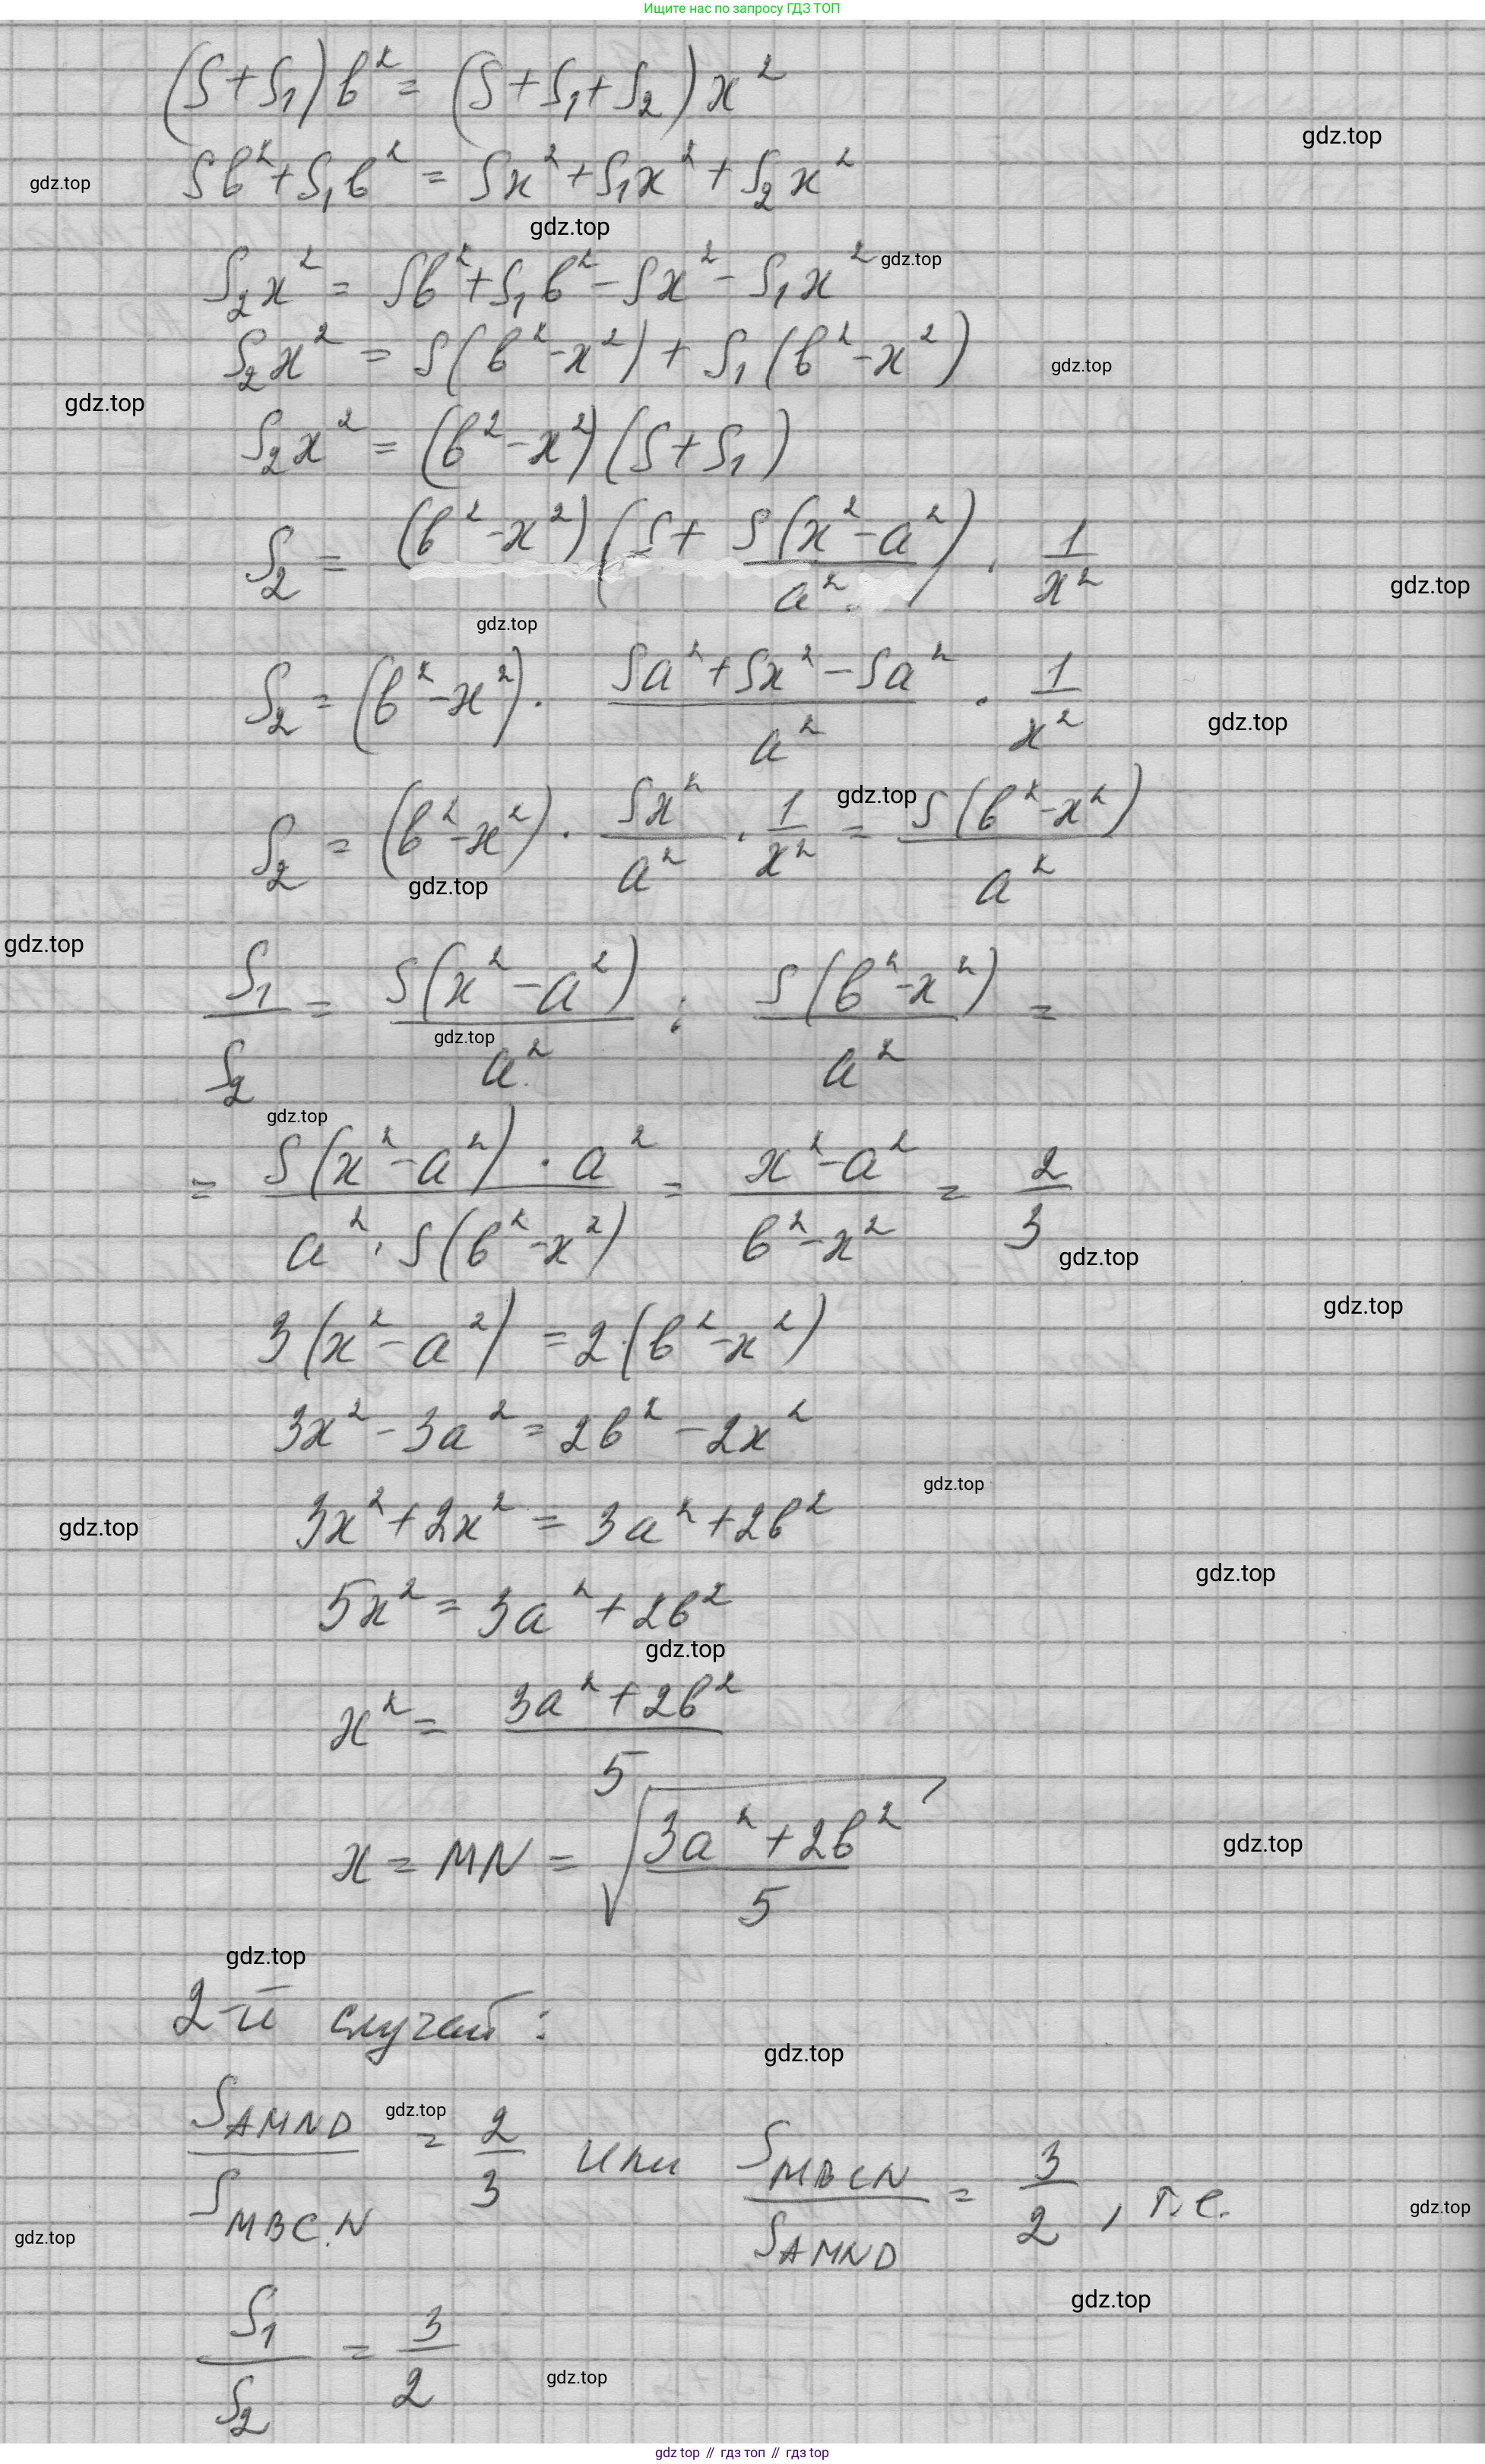 Ищите нас по запросу ГДЗ ТОП
(S+S₁)b² = (S+S₁+S₂)x²
gdz.top
Sb²+S₁b² = Sx²+S₁x²+S₂x²
gdz.top
gdz.top
S₂x² = Sb²+S₁b²-Sx²-S₁x²
gdz.top
S₂x² = S(b²-x²)+S₁(b²-x²)
gdz.top
gdz.top
S₂x² = (b²-x²)(S+S₁)
S₂ = (b²-x²)(S+ S(x²-a²)/a²) · 1/x²
gdz.top
gdz.top
S₂ = (b²-x²) · (Sa²+Sx²-Sa²)/a² · 1/x²
gdz.top
gdz.top
S₂ = (b²-x²) · Sx²/a² · 1/x² = S(b²-x²)/a²
gdz.top
gdz.top
S₁/S₂ = S(x²-a²)/a² : S(b²-x²)/a² =
gdz.top
gdz.top
= S(x²-a²)·a²/a²·S(b²-x²) = (x²-a²)/(b²-x²) = 2/3
gdz.top
gdz.top
3(x²-a²) = 2·(b²-x²)
3x²-3a² = 2b²-2x²
gdz.top
3x²+2x² = 3a²+2b²
gdz.top
gdz.top
5x² = 3a²+2b²
gdz.top
x² = (3a²+2b²)/5
x = MN = √((3a²+2b²)/5)
gdz.top
gdz.top
2-й случай:
gdz.top
S_AMND/S_MBCN = 2/3 или S_MBCN/S_AMND = 3/2, т.е.
gdz.top
gdz.top
gdz.top
gdz.top
S₁/S₂ = 3/2
gdz.top
gdz top // гдз топ // гдз top